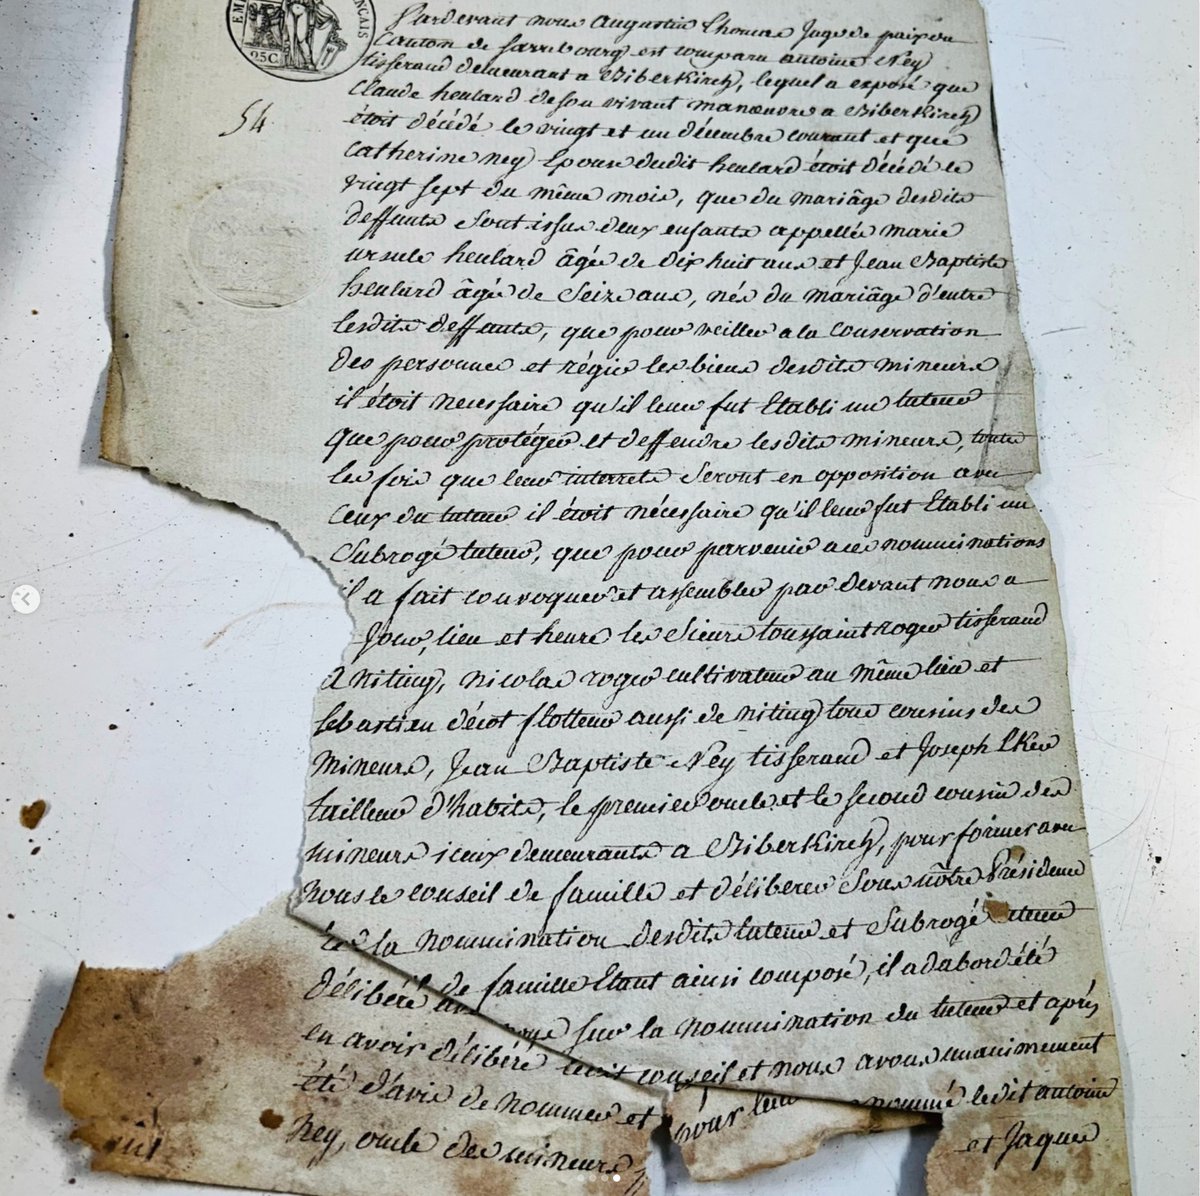 EM
ÇAIS
25C
54
Pardevant nous Augustin Thomas Juge de paix du
Canton de Sarrebourg est comparu antoine Ney
tisserand demeurant a Biberkirch, lequel a exposé que
Claude heulard de son vivant manœuvre a Biberkirch
étoit décédé le vingt et un décembre courant et que
Catherine ney Epouse dudit heulard étoit décédé le
vingt sept du même mois, que du mariâge desdits
deffunts sont issus deux enfants appellés marie
ursule heulard âgée de dix huit ans et Jean Baptiste
heulard âgé de Seize ans, nés du mariâge d'entre
lesdits deffunts, que pour veiller a la Conservation
des personnes et régir les biens desdits mineurs
il étoit necessaire qu'il leur fut Etabli un tuteur
que pour protéger et deffendre lesdits mineurs, toutes
les fois que leurs interrets Seront en opposition avec
Ceux du tuteur il étoit nécessaire qu'il leur fut Etabli un
Subrogé tuteur, que pour parvenir a ces nominations
il a fait convoquer et assembler par devant nous a
Jour, lieu et heure les Sieurs toussaint Roger tisserand
a Niting, nicolas roger cultivateur au même lieu et
Sebastien décot flotteur aussi de niting tous cousins des
mineurs, Jean Baptiste Ney tisserand et Joseph
tailleur d'habits, le premier oncle et le second cousin des
mineurs iceux demeurants a Biberkirch, pour former avec
nous le conseil de famille et délibérer Sous nôtre Présidence
la nomination desdits tuteur et Subrogé tuteur
de famille Etant ainsi composé, il a dabord été
délibéré avec nous sur la nomination du tuteur et après
en avoir délibéré ledit conseil et nous avons unanimement
été d'avis de nommer et pour leur nommé ledit antoine
Ney, oncle des mineurs et Jaques